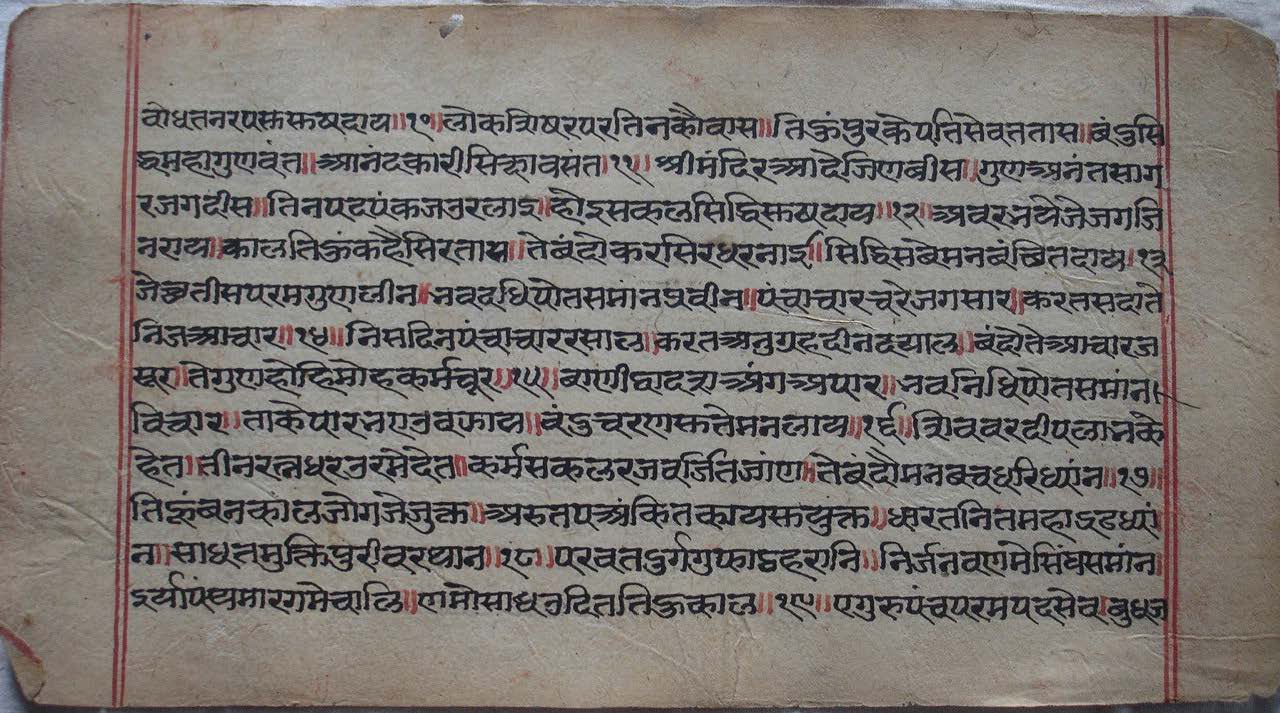 बोधतनरपसुरसुषदाय॥१०॥लोकशिषरपरतिनकौवास॥तिऊंपुरकेपतिसेवततास॥बंदुसि
द्धमहागुणवंत॥आनंदकारीसिद्धावसंत॥११॥श्रीमंदिरआदेजिणबीस॥गुणअनंतसाग
रजगदीस॥तिनपदपंकजउरलाइ॥होइसकलसिद्धिसुषदाय॥१२॥अवरभयेजेजगजि
नराय॥कालतिऊंकहैसिरताय॥तेबंदोकरसिरधरनाई॥सिद्धिसबैमनबंछितदाय॥१३
जेछतीसपरमगुणलीन॥भवदधिपोतसमांनप्रवीन॥पंचाचारचरेजगसार॥करतसदाते
निजआचार॥१४॥निसदिनपंचाचाररसाल॥करतअनुग्रहदीनदयाल॥बंदोतेआचारज
सूर॥तेगुणहोहिमोहकर्मचूर॥१५॥बाणीद्वादशअंगअपार॥भवनिधिपोतसमांन।
विचार॥ताकेपारभएउवझाय॥बंदुचरणसुतेमनलाय॥१६॥शिववरदीपलानके
हेत॥तीनरत्नधरउरमेदेत॥कर्मसकलरजवर्जितजांण॥तेबंदौमनबचधरिध्यांन॥१७॥
तिहूंबनकालजोगजेजुक्त॥अरुतपअंकितकायसुयुक्त॥धारतनितमहाद्रढध्यां
न॥साधतमुक्तिपुरीवरथान॥१८॥परवतदुर्गगुफाद्रहरानि॥निर्जनवणमेसिंघसमांन
इर्यापंथमारगमेचालि॥णमोसाधउदिततिऊकाल॥१९॥एगुरुपंचपरमपदसेव॥बुधज